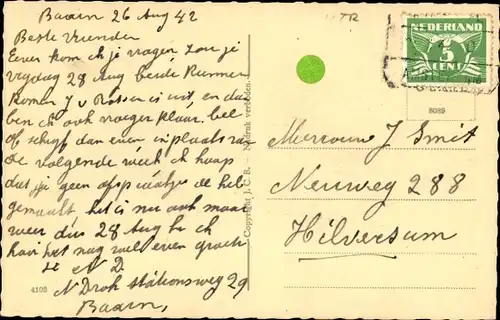 Baarn 26 Aug 42
Beste Vrienden
Even kom ik je vragen zou je
vrydag 28 Aug beide kunnen
komen J v Rossen is uit, en dan
ben ik ook vroeger klaar. bel
of schryf dan even in plaats van
de volgende week ik hoop
dat je geen afspraakjes de heb
gemaakt het is nu ook maar
weer dus 28 Aug
hoor het nog wel even groeten
N D
N Drok Stationsweg 29
Baarn,
4103
Copyright J. C. B. - Nadruk verboden
TR
NEDERLAND
5
CENT
8089
Mevrouw J Smit
Neuweg 288
Hilversum